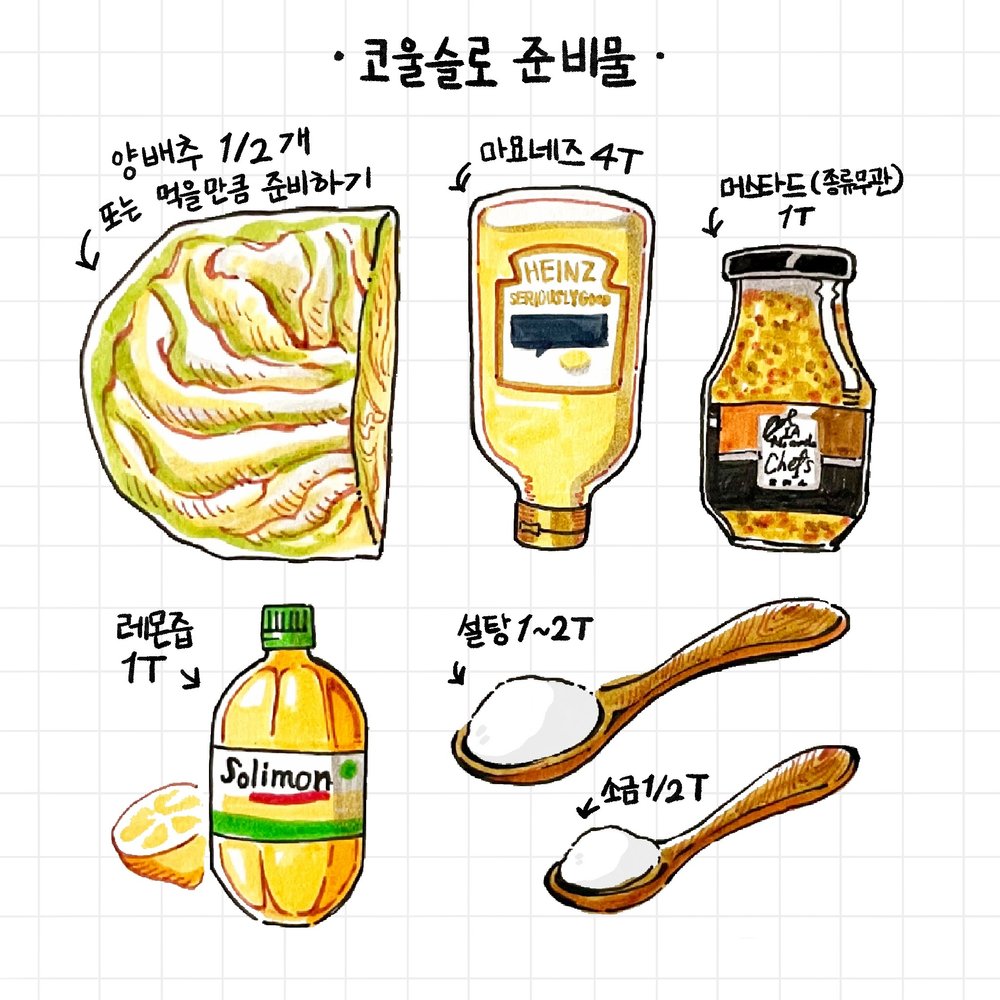 · 코울슬로 준비물 ·
양배추 1/2개
또는 먹을만큼 준비하기
마요네즈 4T
머스타드 (종류무관)
1T
HEINZ
SERIOUSLY GOOD
Chefs
레몬즙
1T
Solimon
설탕 1~2T
소금 1/2T